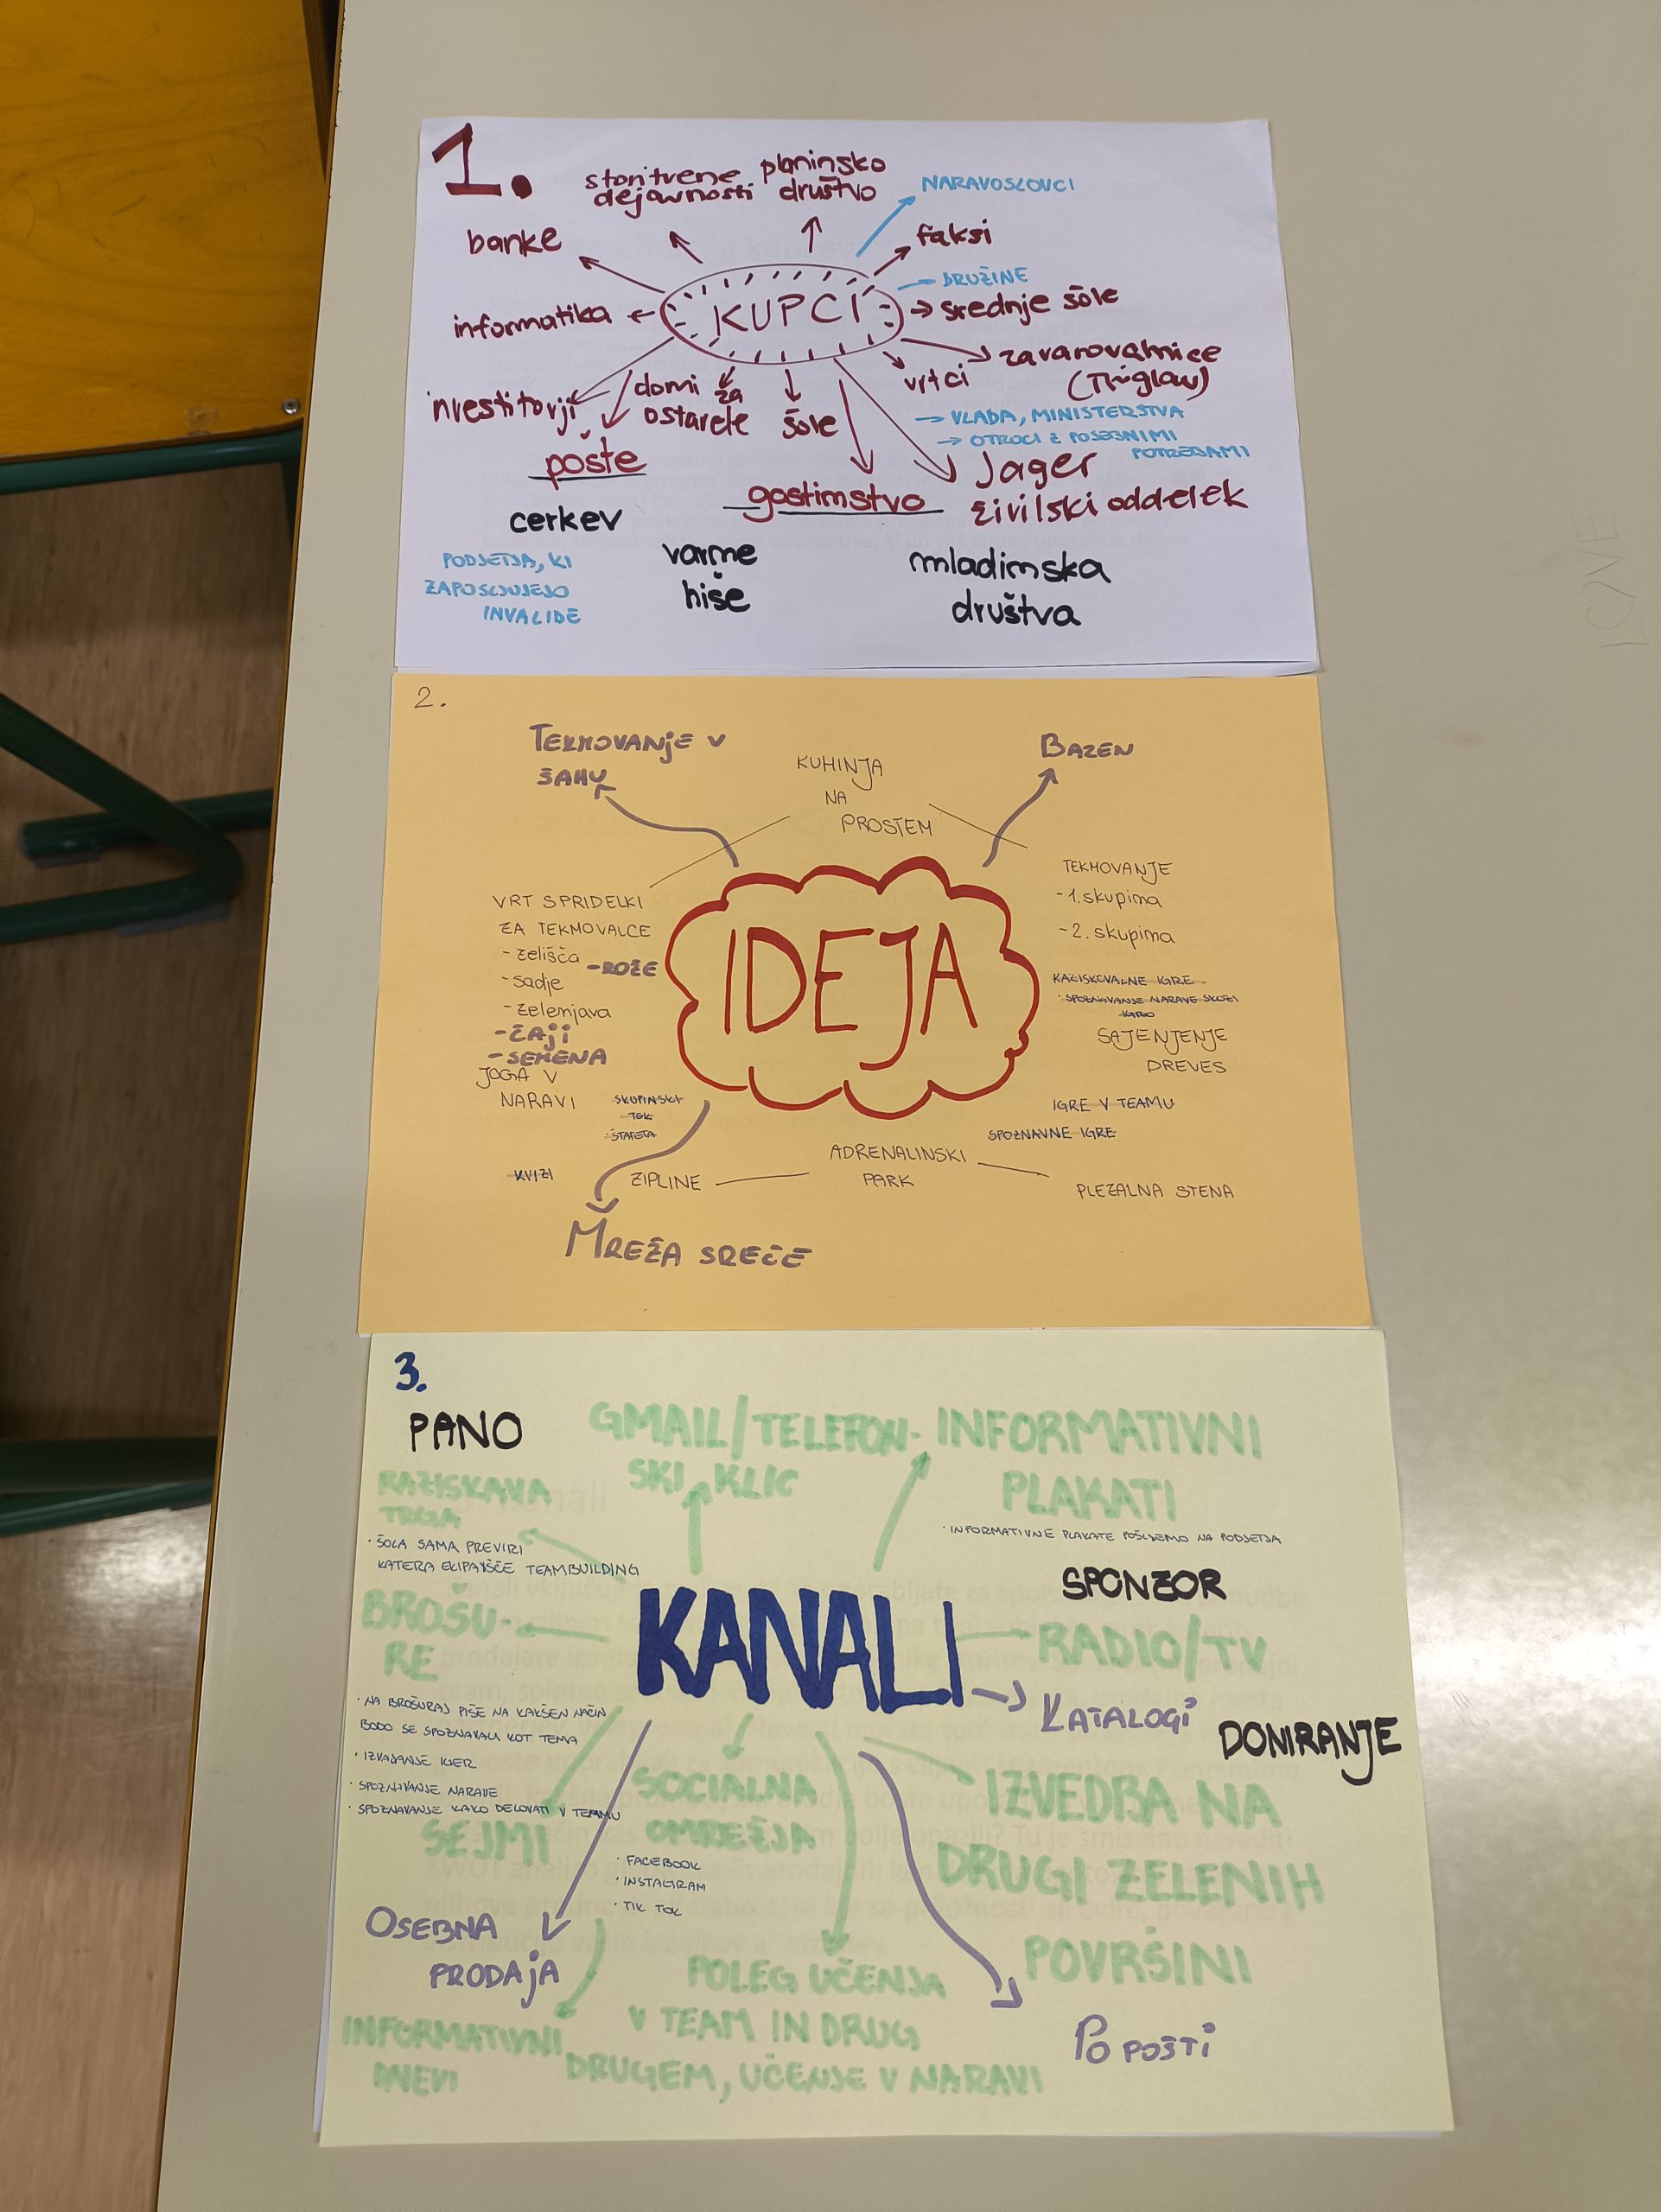 1.
storitvene
dejavnosti
planinsko
društvo
NARAVOSLOVCI
banke
faksi
DRUŽINE
informatika
KUPCI
srednje šole
zavarovalnice
(Triglav)
vrtci
investitorji
domi za
ostarele
šole
VLADA, MINISTERSTVA
OTROCI Z POSEBNIMI
POTREBAMI
pošte
Jager
gostinstvo
civilski oddelek
cerkev
varne
hiše
mladinska
društva
PODJETJA, KI
ZAPOSLJUJEJO
INVALIDE
2.
TEKMOVANJE V
ŠAHU
KUHINJA
NA
PROSTEM
BAZEN
VRT S PRIDELKI
ZA TEKMOVALCE
- zelišča
- ROŽE
- sadje
- zelenjava
- ČAJI
- SEMENA
IDEJA
TEKMOVANJE
- 1. skupina
- 2. skupina
RAZISKOVALNE IGRE
· SPOZNAVANJE NARAVE SKOZI
IGRO
SAJENJENJE
DREVES
JOGA V
NARAVI
SKUPINSKI
TEK
· ŠTAFETA
IGRE V TEAMU
SPOZNAVNE IGRE
KVIZI
ZIPLINE
ADRENALINSKI
PARK
PLEZALNA STENA
MREŽA SREČE
3.
PANO
GMAIL/TELEFON-
SKI KLIC
INFORMATIVNI
PLAKATI
· INFORMATIVNE PLAKATE POŠLJEMO NA PODJETJA
RAZISKAVA
TRGA
· ŠOLA SAMA PREVIRI
KATERA EKIPA IŠČE TEAMBUILDING
SPONZOR
BROŠU-
RE
KANALI
RADIO/TV
KATALOGI
DONIRANJE
· NA BROŠURAJ PIŠE NA KAKŠEN NAČIN
BODO SE SPOZNAVALI KOT TEMA
· IZVAJANJE IGER
· SPOZNAVANJE NARAVE
· SPOZNAVANJE KAKO DELOVATI V TEAMU
SEJMI
SOCIALNA
OMREŽJA
· FACEBOOK
· INSTAGRAM
· TIK TOK
IZVEDBA NA
DRUGI ZELENIH
POVRŠINI
OSEBNA
PRODAJA
POLEG UČENJA
V TEAM IN DRUG
DRUGEM, UČENJE V NARAVI
INFORMATIVNI
DNEVI
PO POŠTI
LOVE